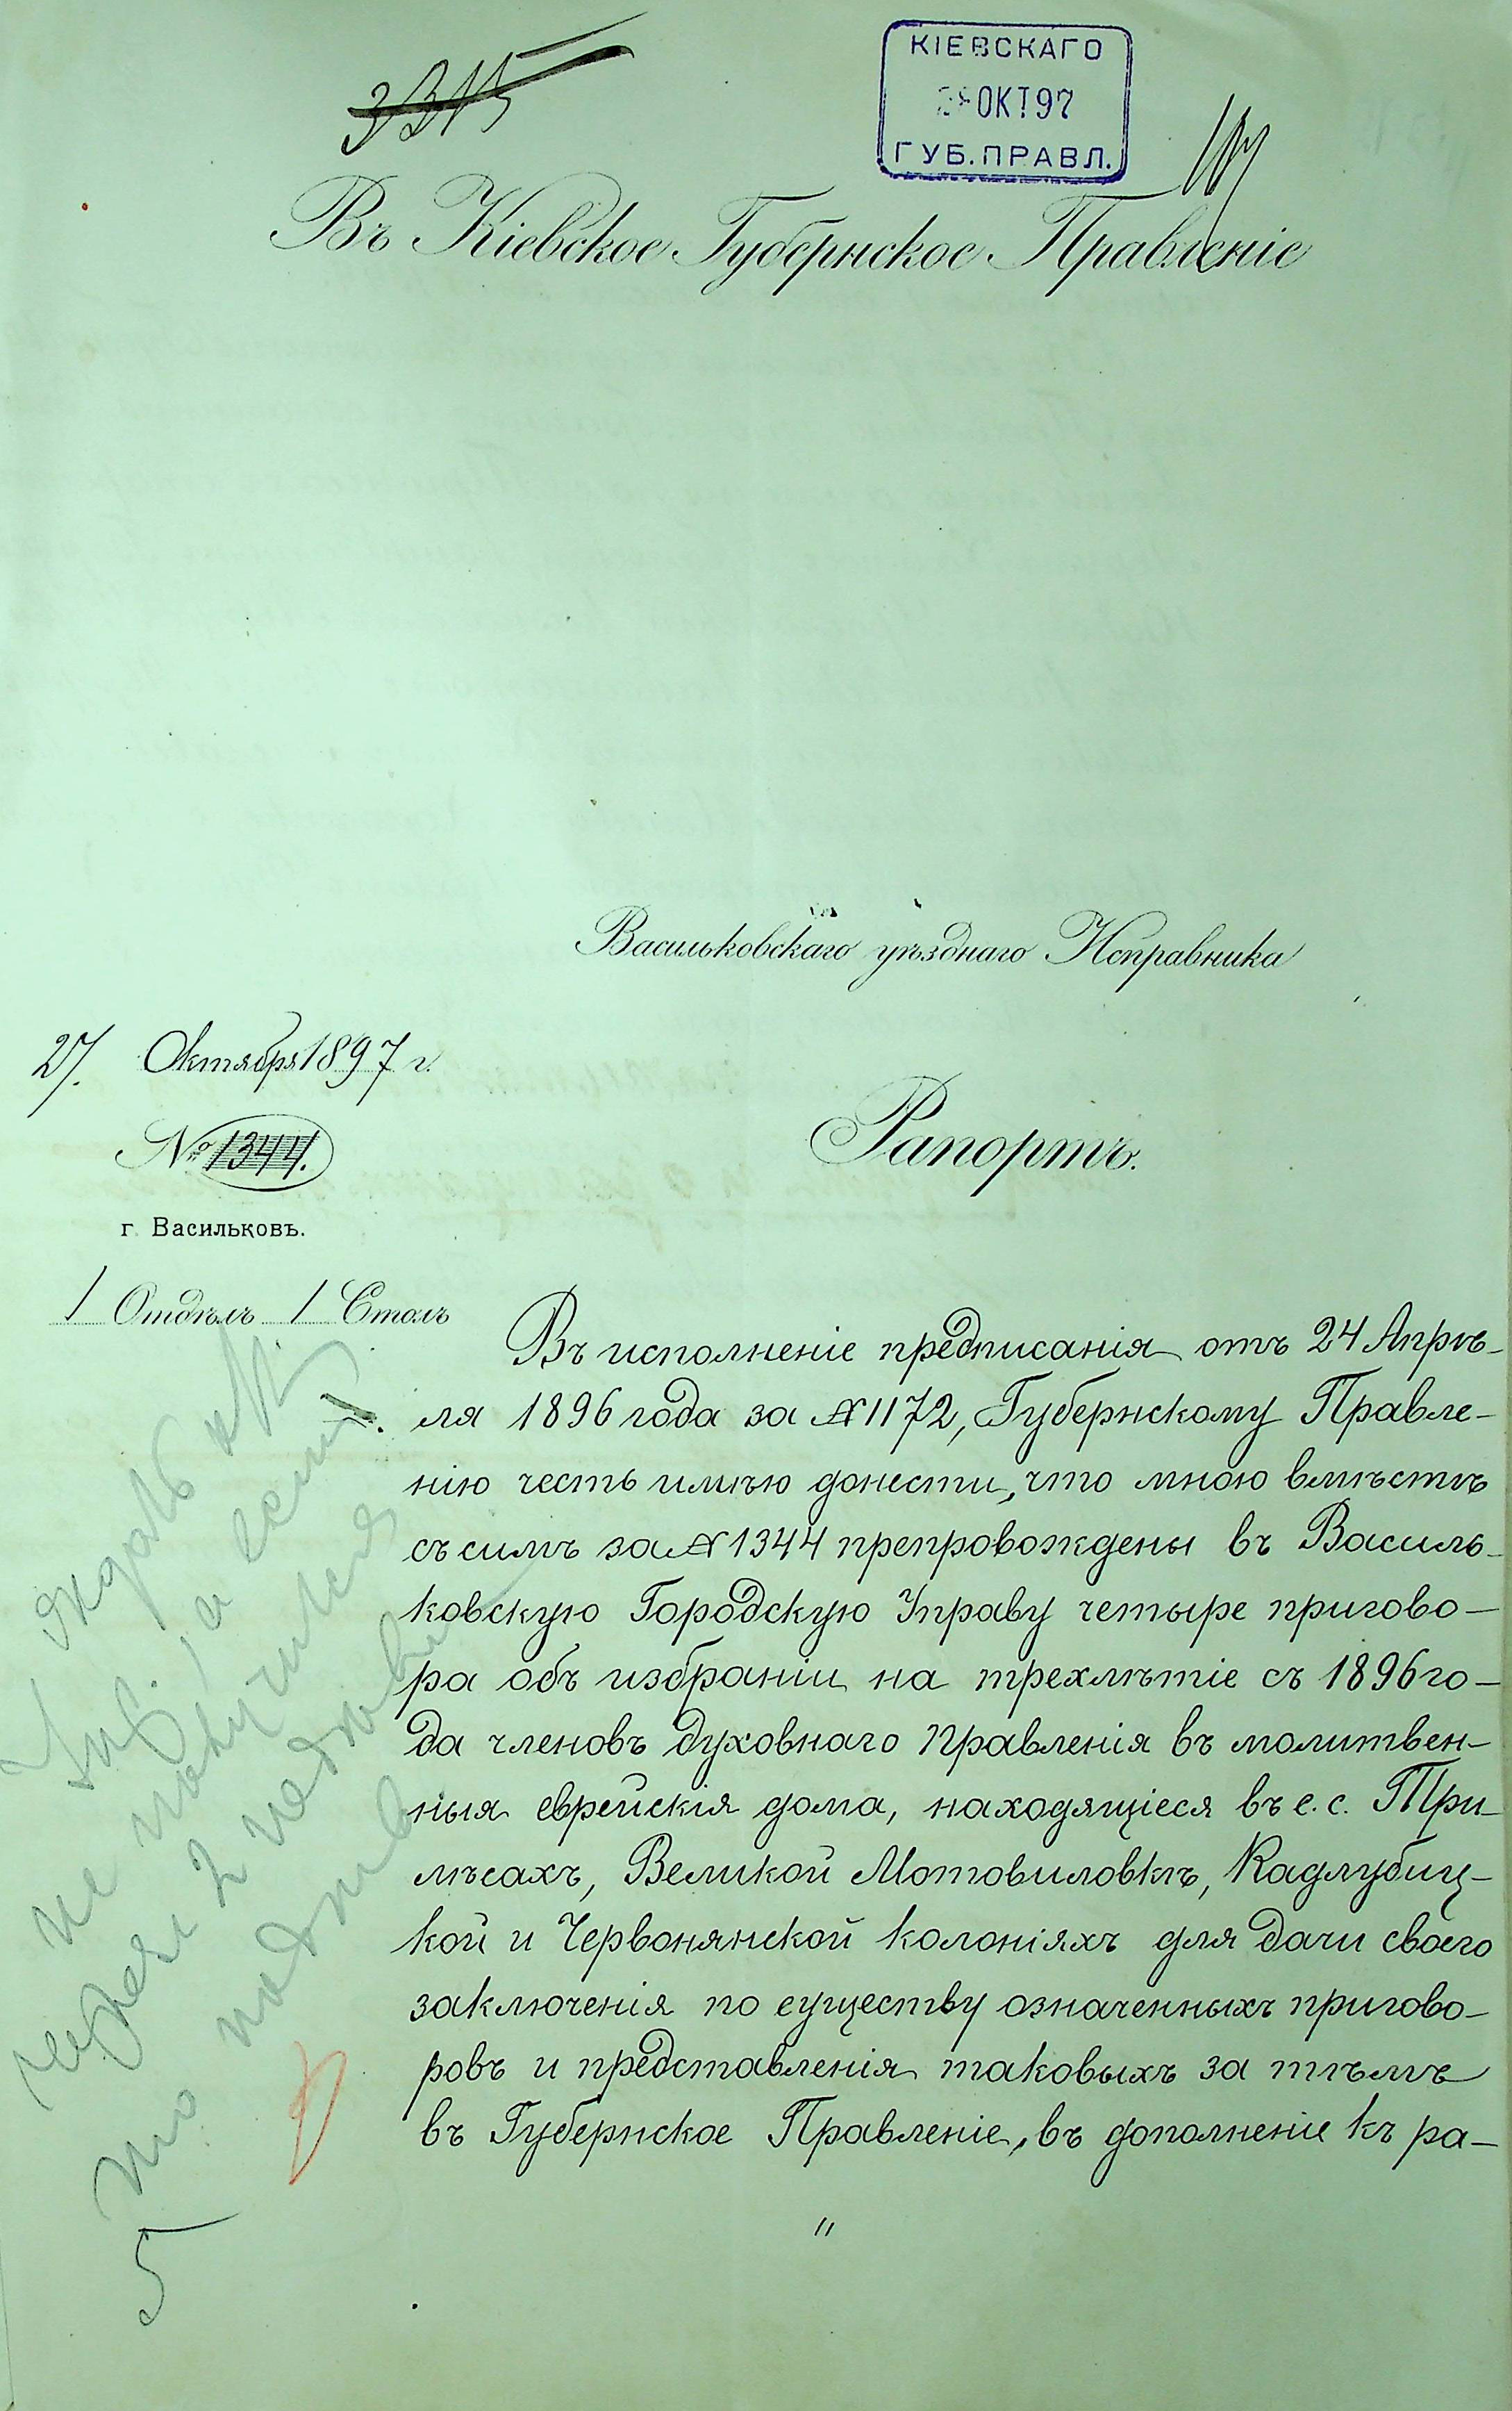 3315
КІЕВСКАГО
ОКТ 97
ГУБ. ПРАВЛ.
Въ Кіевское Губернское Правленіе
Васильковскаго уѣзднаго Исправника
27. Октября 1897 г.
№ 1344.
Рапортъ.
г. Васильковъ.
1 Отдѣлъ 1 Столъ
Въ исполненіе предписанія отъ 24 Апрѣ-
ля 1896 года за № 1172, Губернскому Правле-
нію честь имѣю донести, что мною вмѣстѣ
съ симъ за № 1344 препровождены въ Василь-
ковскую Городскую Управу четыре пригово-
ра объ избраніи на трехлѣтіе съ 1896 го-
да членовъ духовнаго Правленія въ молитвен-
ныя еврейскія дома, находящіеся въ с. с. При-
лѣсахъ, Великой Мотовиловкѣ, Кадлубиц-
кой и Червонянской колоніяхъ для дачи своего
заключенія по существу означенныхъ пригово-
ровъ и представленія таковыхъ за тѣмъ
въ Губернское Правленіе, въ дополненіе къ ра-
"
а если
не получится
черезъ 2 недѣли
то
5